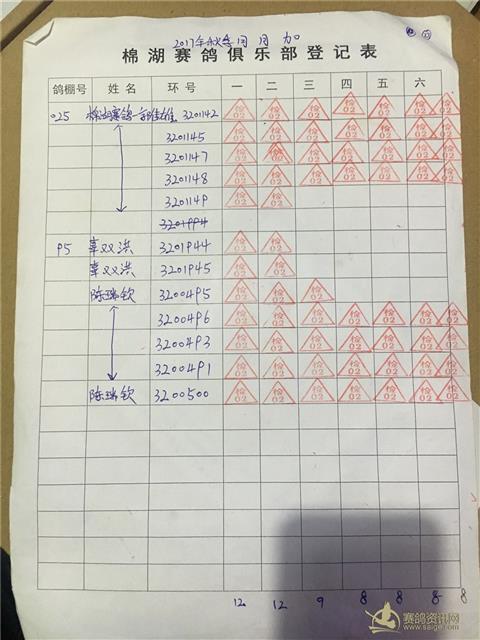 2017年秋季 月 日 加
棉湖赛鸽俱乐部登记表
鸽棚号 姓名 环号 一 二 三 四 五 六
025 棉湖赛鸽 3201142 检02 检02 检02 检02 检02 检02
3201145 检02 检02 检02 检02 检02 检02
3201147 检02 检02 检02 检02 检02 检02
3201148 检02 检02 检02 检02 检02 检02
3201149 检02 检02
3201994
95 辜双洪 3201944 检02 检02
辜双洪 3201945 检02 检02
陈瑞钦 3200495 检02 检02 检02
3200496 检02 检02 检02 检02 检02 检02 检02
3200493 检02 检02 检02 检02 检02 检02 检02
3200491 检02 检02 检02 检02 检02 检02 检02
陈瑞钦 3200500 检02 检02 检02 检02 检02 检02 检02
12 12 9 8 8 8 8
赛鸽资讯网
www.saige.com